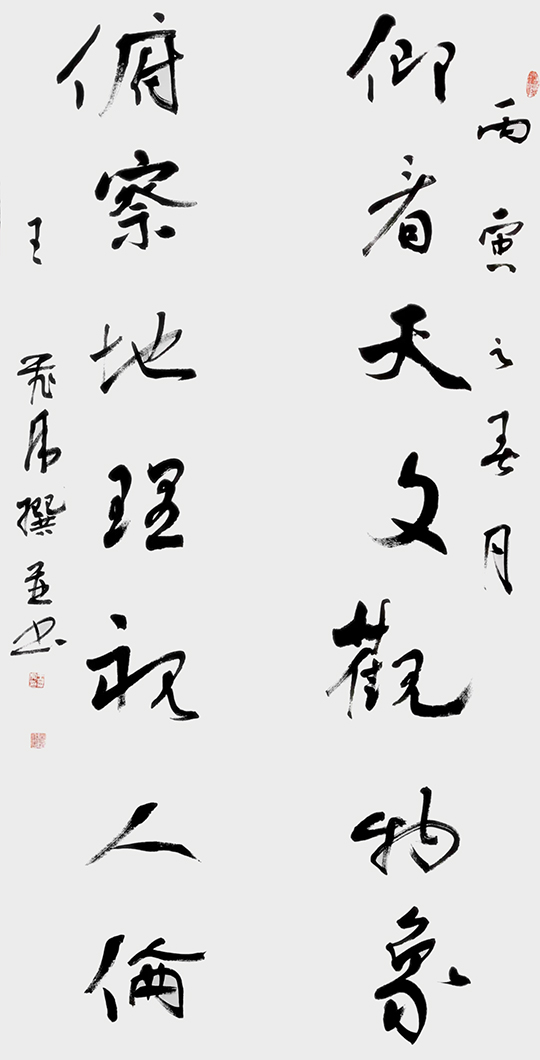 丙寅之春月
仰看天文觀物象
俯察地理視人倫
王撰並書